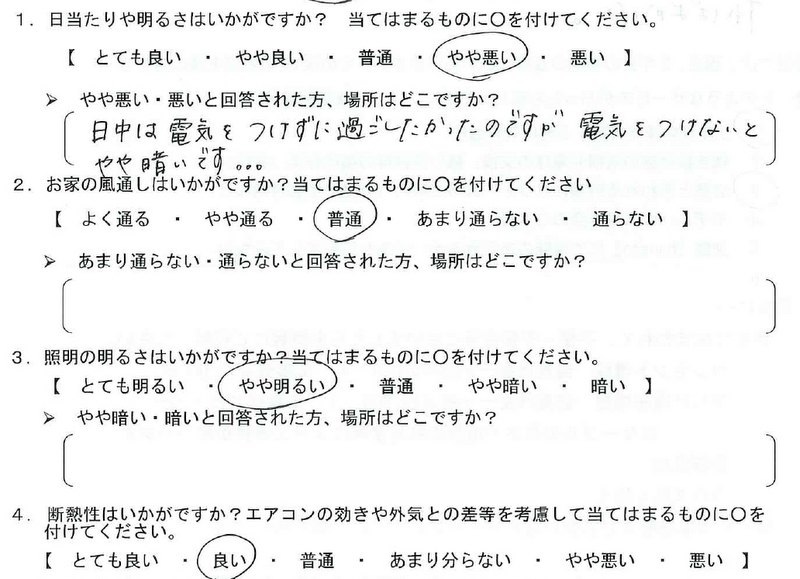 1．日当たりや明るさはいかがですか？　当てはまるものに〇を付けてください。
【　とても良い　・　やや良い　・　普通　・　やや悪い　・　悪い　】
➢　やや悪い・悪いと回答された方、場所はどこですか？
日中は電気をつけずに過ごしたかったのですが電気をつけないと
やや暗いです。。。
2．お家の風通しはいかがですか？当てはまるものに〇を付けてください
【　よく通る　・　やや通る　・　普通　・　あまり通らない　・　通らない　】
➢　あまり通らない・通らないと回答された方、場所はどこですか？
3．照明の明るさはいかがですか？当てはまるものに〇を付けてください。
【　とても明るい　・　やや明るい　・　普通　・　やや暗い　・　暗い　】
➢　やや暗い・暗いと回答された方、場所はどこですか？
4．断熱性はいかがですか？エアコンの効きや外気との差等を考慮して当てはまるものに〇を
付けてください。
【　とても良い　・　良い　・　普通　・　あまり分らない　・　やや悪い　・　悪い　】